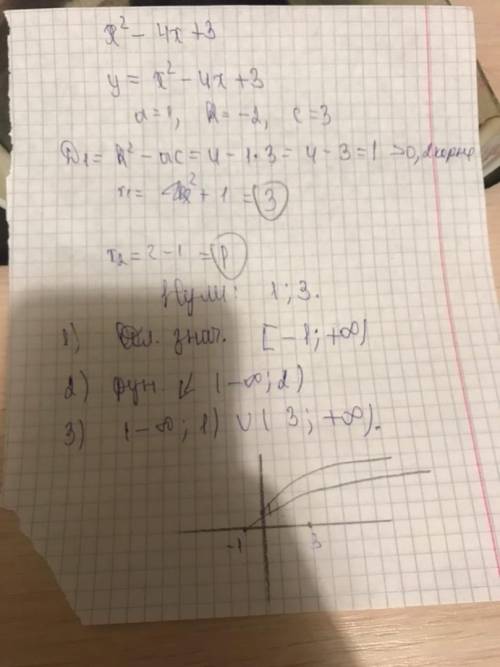 x² - 4x + 3
y = x² - 4x + 3
a = 1, k = -2, c = 3
D₁ = k² - ac = 4 - 1·3 = 4 - 3 = 1 > 0, 2 корня
x₁ = 2 + 1 = 3
x₂ = 2 - 1 = 1
Нули: 1; 3.
1) знач. [-1; +∞)
2) фун. ↙ (-∞; 2)
3) (-∞; 1) ∪ (3; +∞).
-1 3